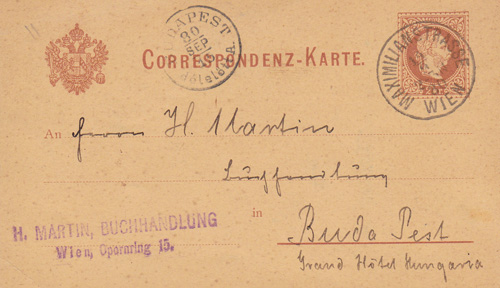 BUDAPEST
30
SEP
CORRESPONDENZ-KARTE.
MAXIMILIANSTRASSE
WIEN
An Herrn H. Martin
in Buda Pest
Grand Hôtel Hungaria
H. MARTIN, BUCHHANDLUNG
Wien, Opernring 15.